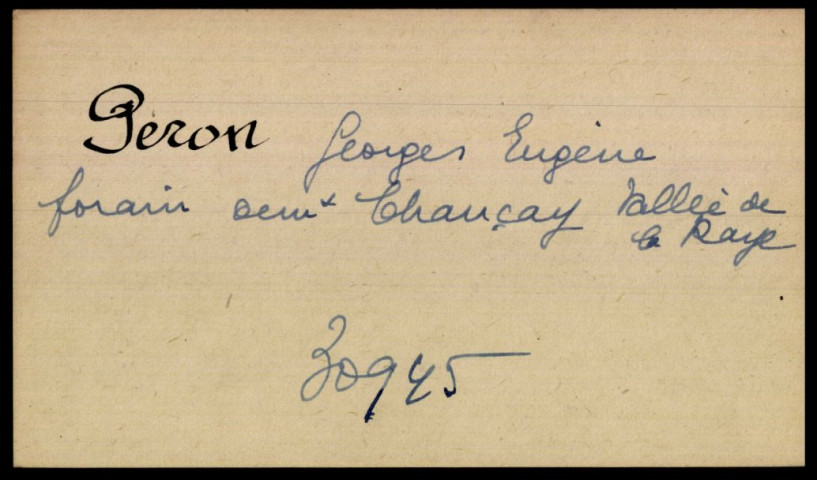 Péron Georges Eugène
forain demt Chançay Vallée de
la Raye
30945